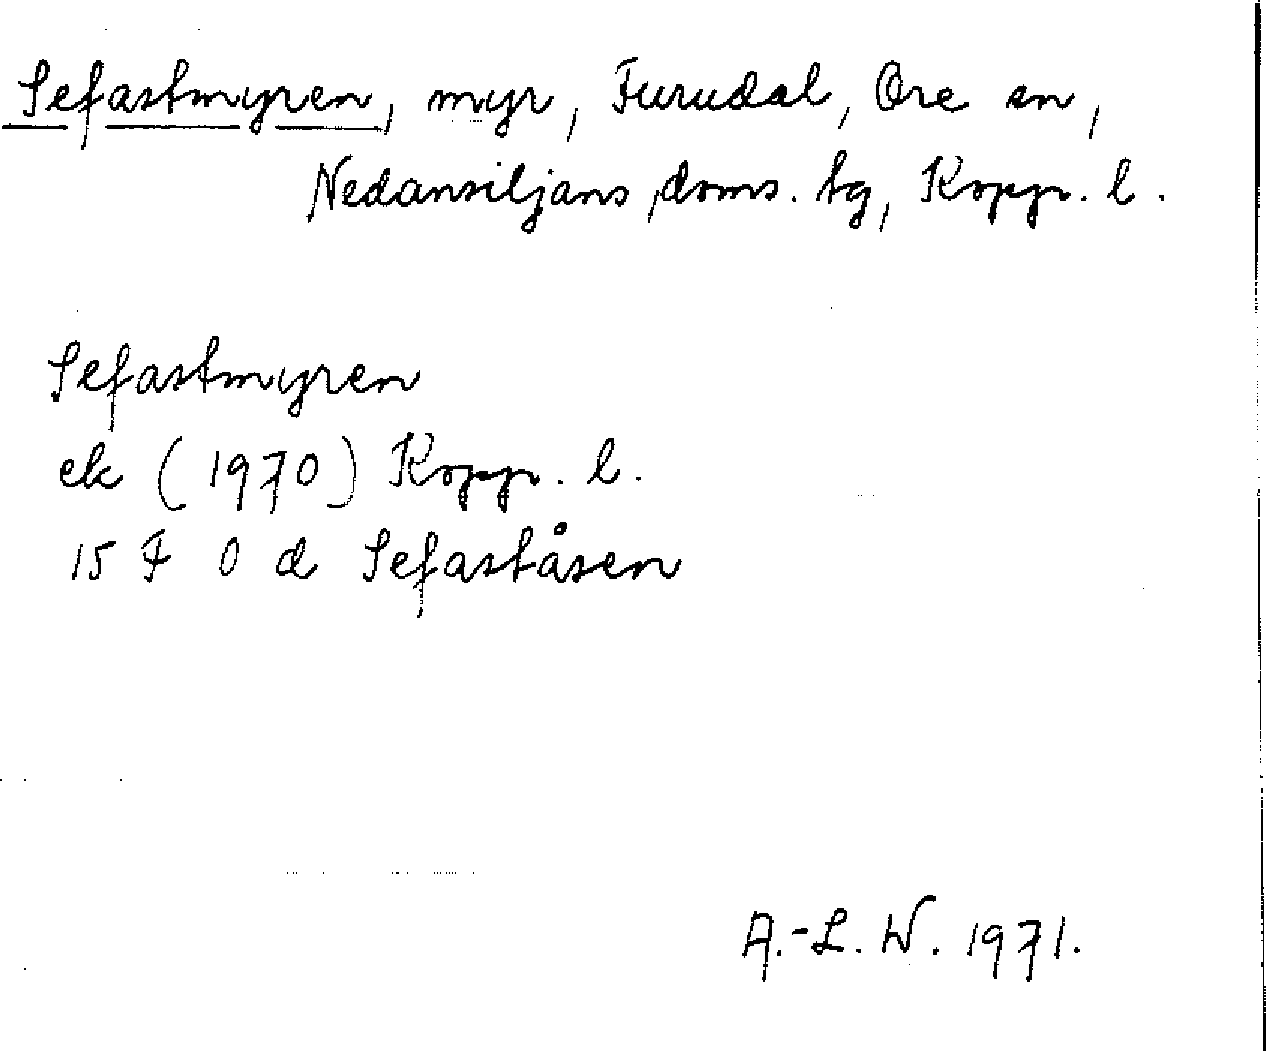 Sefastmyren, myr, Furudal, Ore sn,
Nedansiljans doms. tg, Kopp. l.
Sefastmyren
ek (1970) Kopp. l.
15 F 0 d Sefaståsen
A.-L. W. 1971.